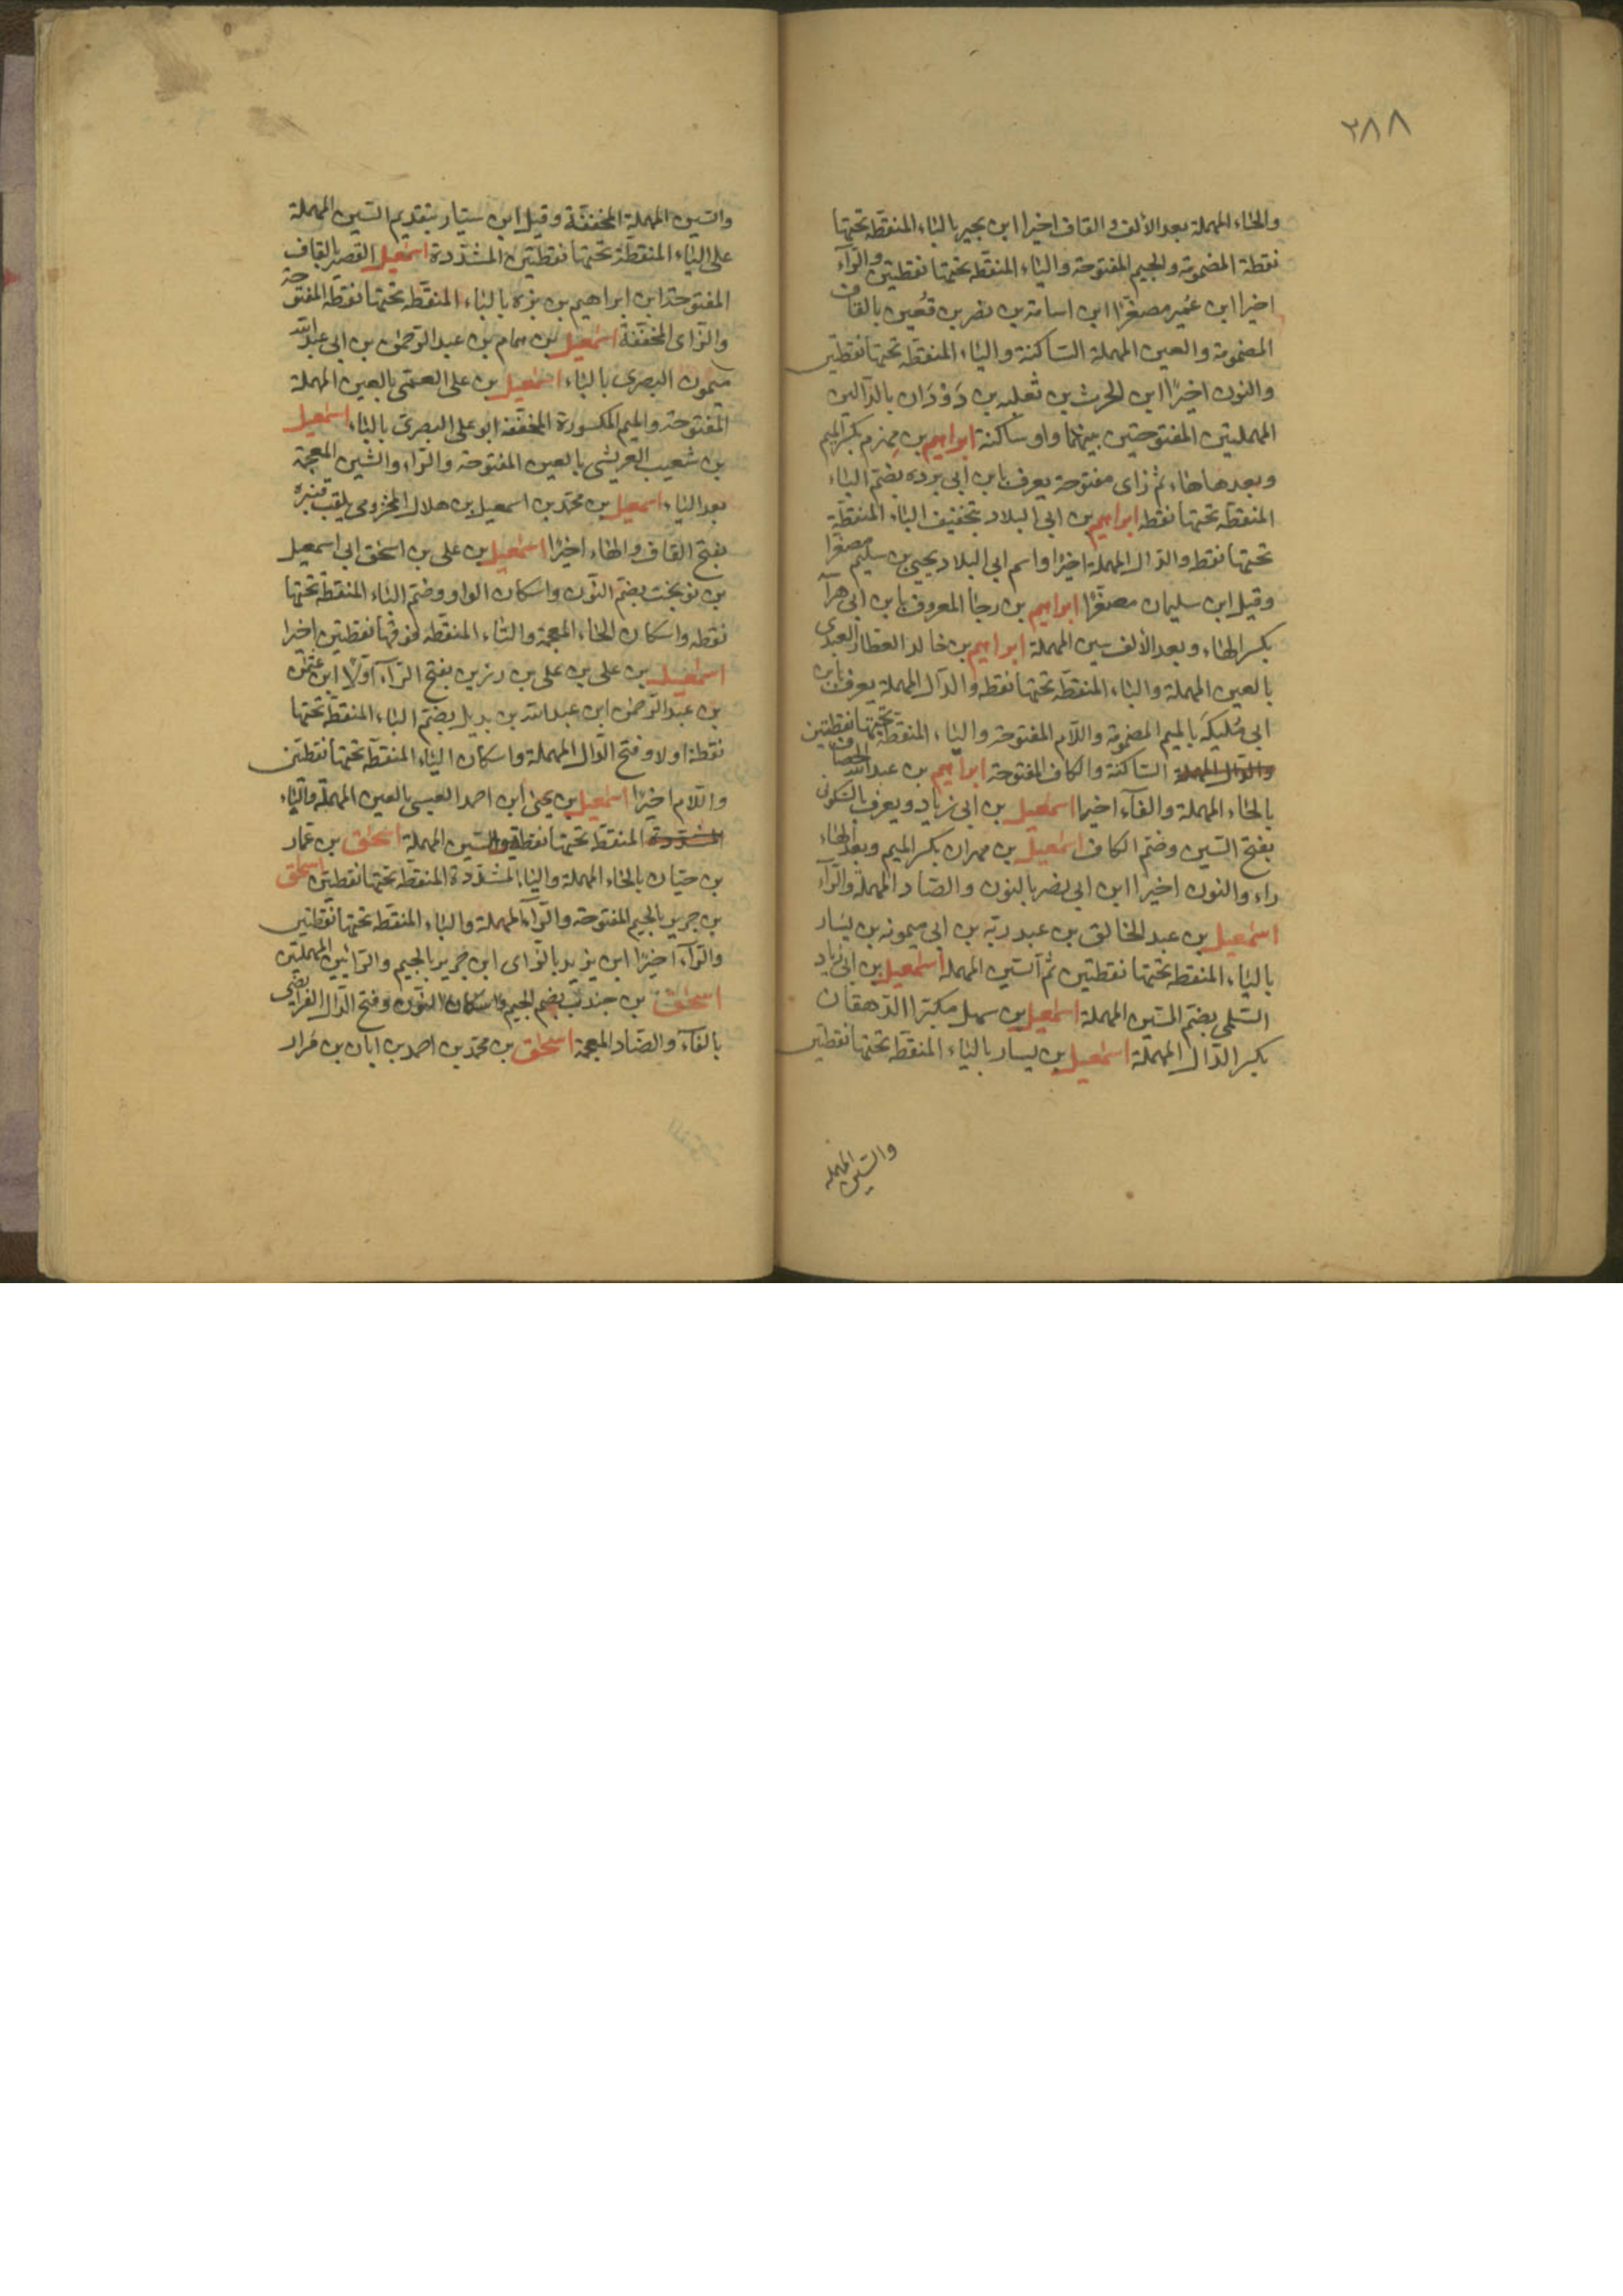 ٢٨٨
والحاء المهملة بعد الألف والقاف اخيرا ابن بجير بالباء المنقطة تحتها
نقطة المضمومة والجيم المفتوحة والياء المنقطة تحتها نقطتين والرآء
اخيرا ابن عمير مصغرا ابن اسامة بن نضر بن قعين بالقاف
المضمومة والعين المهملة الساكنة والياء المنقطة تحتها نقطتين
والنون اخيرا ابن الحرث بن ثعلبه بن دودان بالدالين
المهملتين المفتوحتين بينهما واو ساكنة ابراهيم بن مهزم بكسر الميم
وبعدها هاء ثم زاى مفتوحة يعرف بابن ابى برده بضم الباء
المنقطة تحتها نقطه ابراهيم بن ابى البلاد بتخفيف الباء المنقطة
تحتها نقطه والدال المهملة اخيرا واسم ابى البلاد يحيى بن سليم مصغرا
وقيل ابن سليمان مصغرا ابراهيم بن رجا المعروف بابن ابى هرآ
بكسر الهاء وبعد الألف سين المهملة ابراهيم بن خالد العطار العبدى
بالعين المهملة والباء المنقطة تحتها نقطه والدال المهملة يعرف بابن
ابى مليكه بالميم المضمومة واللام المفتوحة والياء المنقطة تحتها نقطتين
والدال المهملة الساكنة والكاف المفتوحة ابراهيم بن عبدالله الحصاف
بالحاء المهملة والفآء اخيرا اسمعيل بن ابى زياد ويعرف بالسكونى
بفتح السين وضم الكاف اسمعيل بن مهران بكسر الميم وبعد الهاء
راء والنون اخيرا ابن ابى نصر بالنون والصاد المهملة والرآء
اسمعيل بن عبد الخالق بن عبد ربه بن ابى ميمونه بن يسار
بالياء المنقطه تحتها نقطتين ثم السين المهملة اسمعيل بن ابى زياد
السلمى بضم السين المهملة اسمعيل بن سهل مكبرا الدهقان
بكسر الدال المهملة اسمعيل بن يسار بالياء المنقطه تحتها نقطتين
والسين المهمله
والسين المهملة المخففة وقيل ابن سيار بتقديم السين المهملة
على الياء المنقطة تحتها نقطتين المشددة اسمعيل القصير بالقاف
المفتوحة ابن ابراهيم بن بزه بالباء المنقطه تحتها نقطة المفتوحة
والزاى المخففة اسمعيل بن همام بن عبد الرحمن بن ابى عبدالله
ميمون البصرى بالباء اسمعيل بن على العمى بالعين المهملة
المفتوحة والميم المكسورة المخففة ابو على البصرى بالباء اسمعيل
بن شعيب العريشى بالعين المفتوحة والراء والشين المعجمة
بعد الياء اسمعيل بن محمد بن اسمعيل بن هلال المخزومى يلقب قنبره
بفتح القاف والهاء اخيرا اسمعيل بن على بن اسحق ابى اسمعيل
بن نوبخت بضم النون واسكان الواو وضم الباء المنقطة تحتها
نقطه واسكان الخاء المعجمة والتاء المنقطة فوقها نقطتين اخيرا
اسمعيل بن على بن على بن رزين بفتح الرآء اولا ابن عثمن
بن عبد الرحمن ابن عبدالله بن بديل بضم الباء المنقطة تحتها
نقطة اولا وفتح الدال المهملة واسكان الياء المنقطة تحتها نقطتين
واللام اخيرا اسمعيل بن يحيى ابن احمد العبسى بالعين المهملة والباء
المشددة المنقطة تحتها نقطة والسين المهملة اسحق بن عمار
بن حيان بالحاء المهملة والياء المشددة المنقطة تحتها نقطتين اسحق
بن جرير بالجيم المفتوحة والرآء المهملة والياء المنقطه تحتها نقطتين
والرآء اخيرا ابن يزيد بالزاى ابن جرير بالجيم والرائين المهملتين
اسحق بن جندب بضم الجيم واسكان النون وفتح الدال الفرايضى
بالفآء والضاد المعجمة اسحق بن محمد بن احمد بن ابان بن مرار